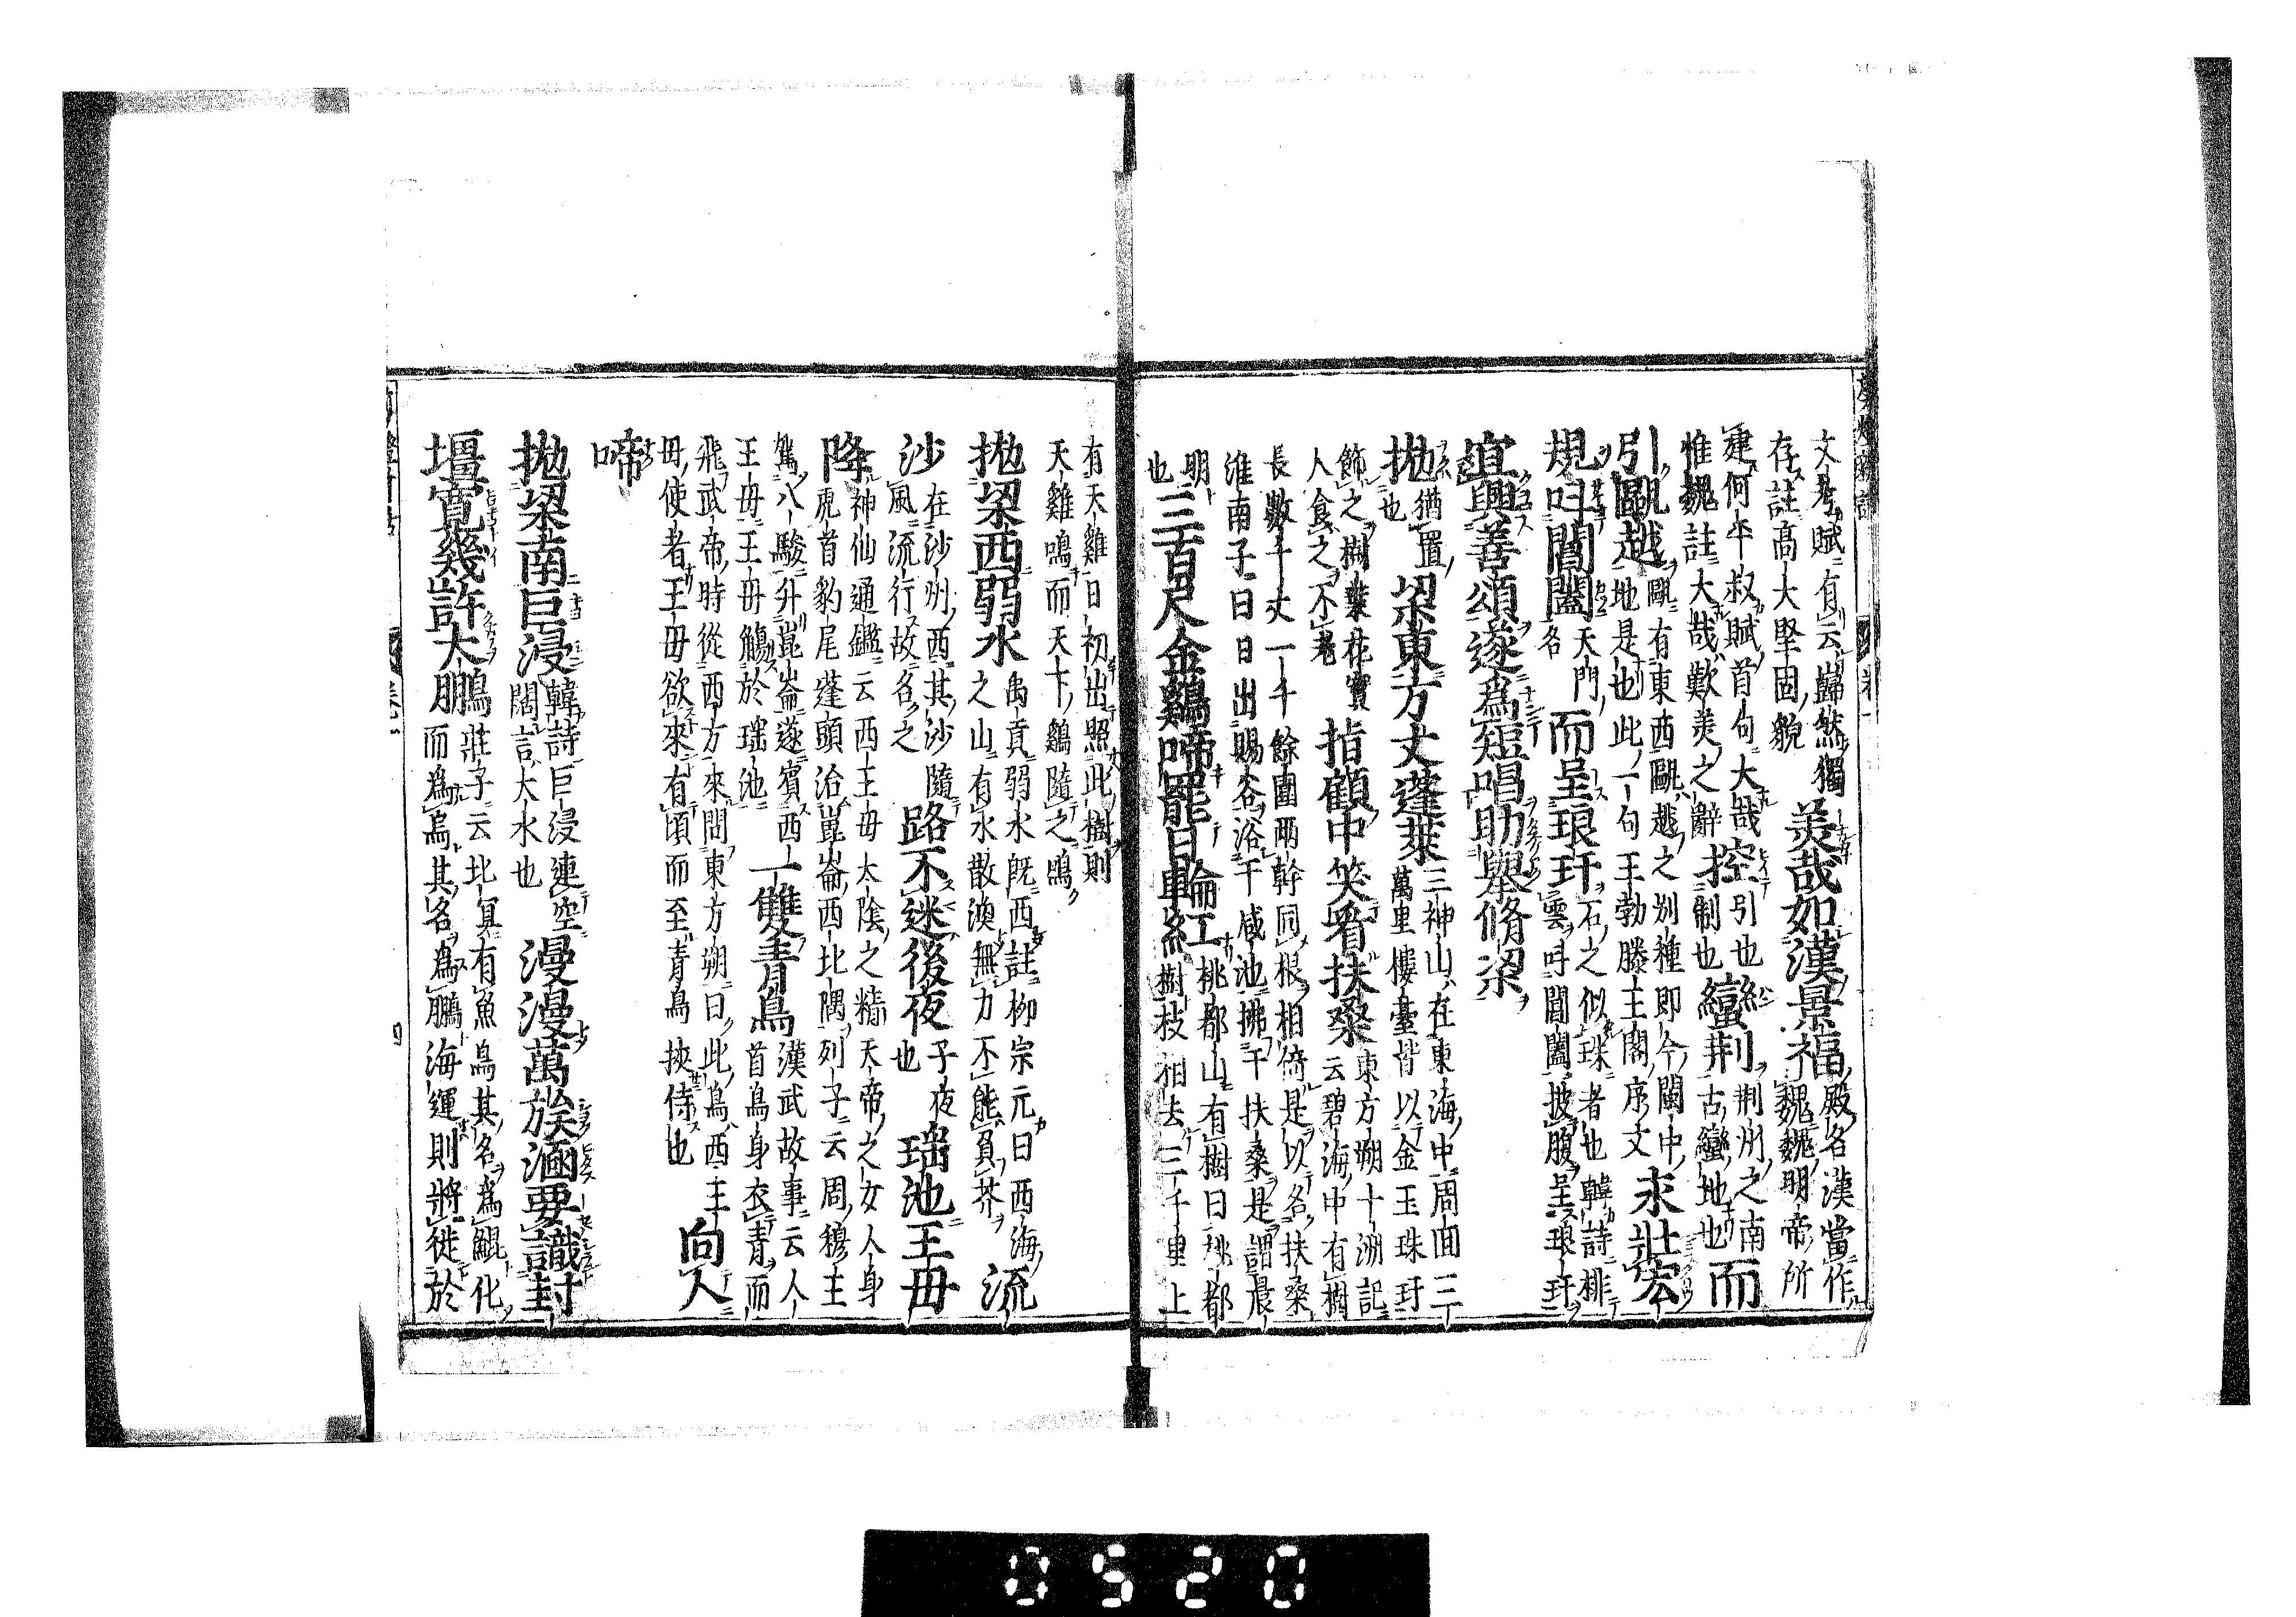 文考賦有云巋然獨存註高大堅固貌美哉如漢景福殿名漢當作魏魏明帝所
建何平叔賦首句大哉惟魏註大哉歎美之辭控引也制也蠻荆荆州之南古蠻地也而
引甌越甌有東西甌越之別種即今閩中地是也此一句王勃滕王閣序文求壯宏
規叫閶闔天門名而呈琅玕石之似珠者也韓詩排雲叫閶闔披腹呈琅玕
宜興善頌遂爲短唱助舉脩梁
拋猶置也梁東方丈蓬萊三神山在東海中周囬三萬里樓臺皆以金玉珠玕
飾之樹葉花實人食之不老指顧中笑看扶桑東方朔十洲記云碧海中有樹
長數千丈一千餘圍兩幹同根相倚是以名扶桑淮南子曰日出暘谷浴于咸池拂于扶桑是謂晨
明也三百尺金鷄啼罷日輪紅桃都山有樹曰桃都樹枝相去三千里上
有天雞日初出照此樹則天雞鳴而天下鷄隨之鳴
拋梁西弱水禹貢弱水既西註柳宗元曰西海之山有水散渙無力不能負芥流
沙在沙州西其沙隨風流行故名之路不迷後夜子夜也瑤池王母
降神仙通鑑云西王母太陰之精天帝之女人身虎首豹尾蓬頭治崑崙西北隅列子云周穆王
駕八駿升崑崙遂賓西王母王母觴於瑤池一雙青鳥漢武故事云人首鳥身衣青而
飛武帝時從西方來問東方朔曰此鳥西王母使者王母欲來有頃而至青鳥挾侍也向人
啼
拋梁南巨浸韓詩巨浸連空闊言大水也漫漫萬族涵要識封
壃寬幾許大鵬莊子云北冥有魚鳥其名爲鯤化而爲鳥其名爲鵬海運則將徙於
四
0520